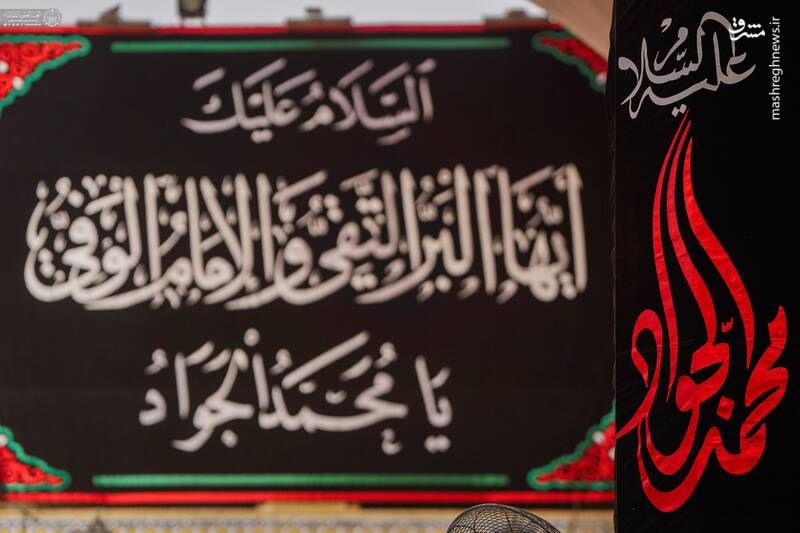 السَّلَامُ عَلَيْكَ
أَيُّهَا البَرُّ التَّقِيُّ وَالإِمَامُ الوَفِيُّ
يَا مُحَمَّدُ الجَوَادُ
محمد الجواد
عليه السلام
مشرق
mashreghnews.ir